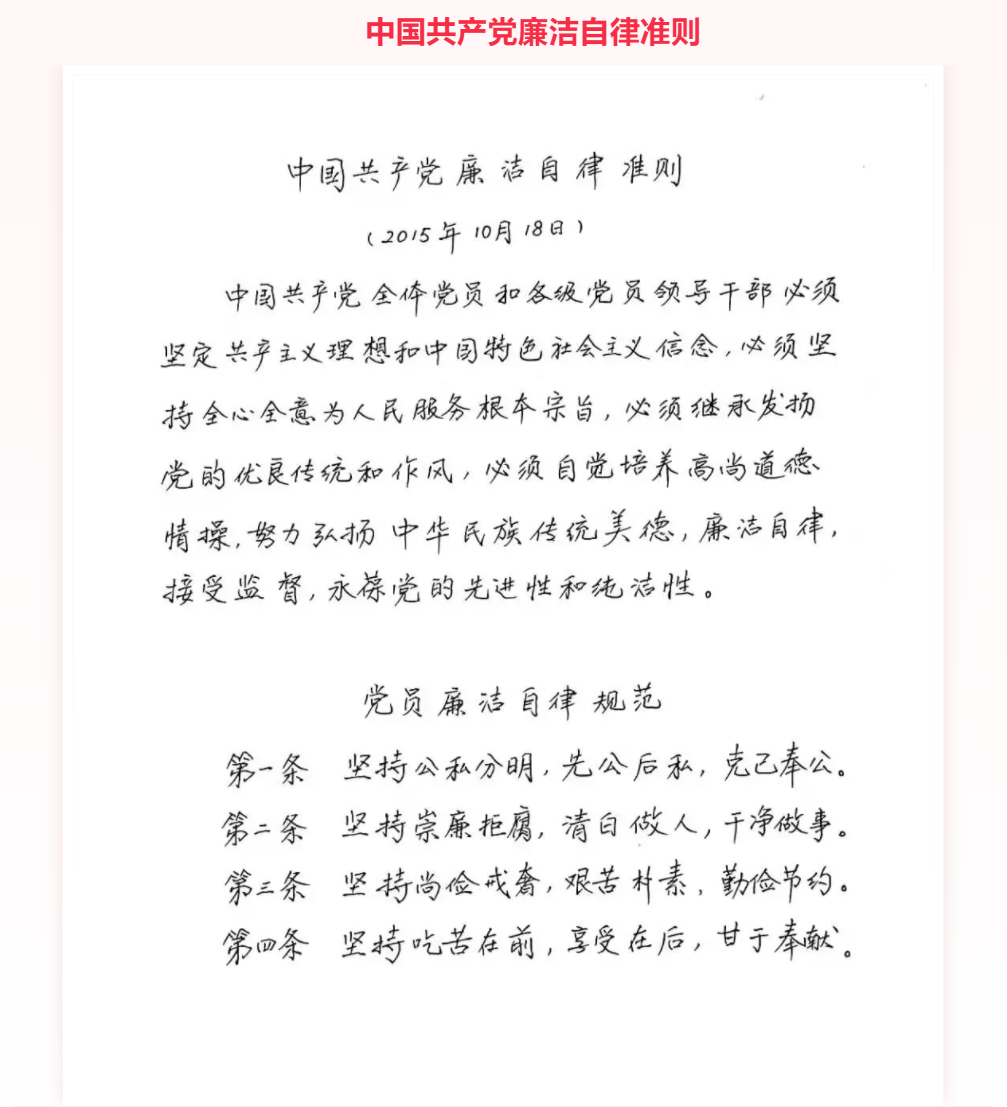 中国共产党廉洁自律准则
中国共产党廉洁自律准则
（2015年10月18日）
中国共产党全体党员和各级党员领导干部必须
坚定共产主义理想和中国特色社会主义信念，必须坚
持全心全意为人民服务根本宗旨，必须继承发扬
党的优良传统和作风，必须自觉培养高尚道德
情操，努力弘扬中华民族传统美德，廉洁自律，
接受监督，永葆党的先进性和纯洁性。
党员廉洁自律规范
第一条 坚持公私分明，先公后私，克己奉公。
第二条 坚持崇廉拒腐，清白做人，干净做事。
第三条 坚持尚俭戒奢，艰苦朴素，勤俭节约。
第四条 坚持吃苦在前，享受在后，甘于奉献。